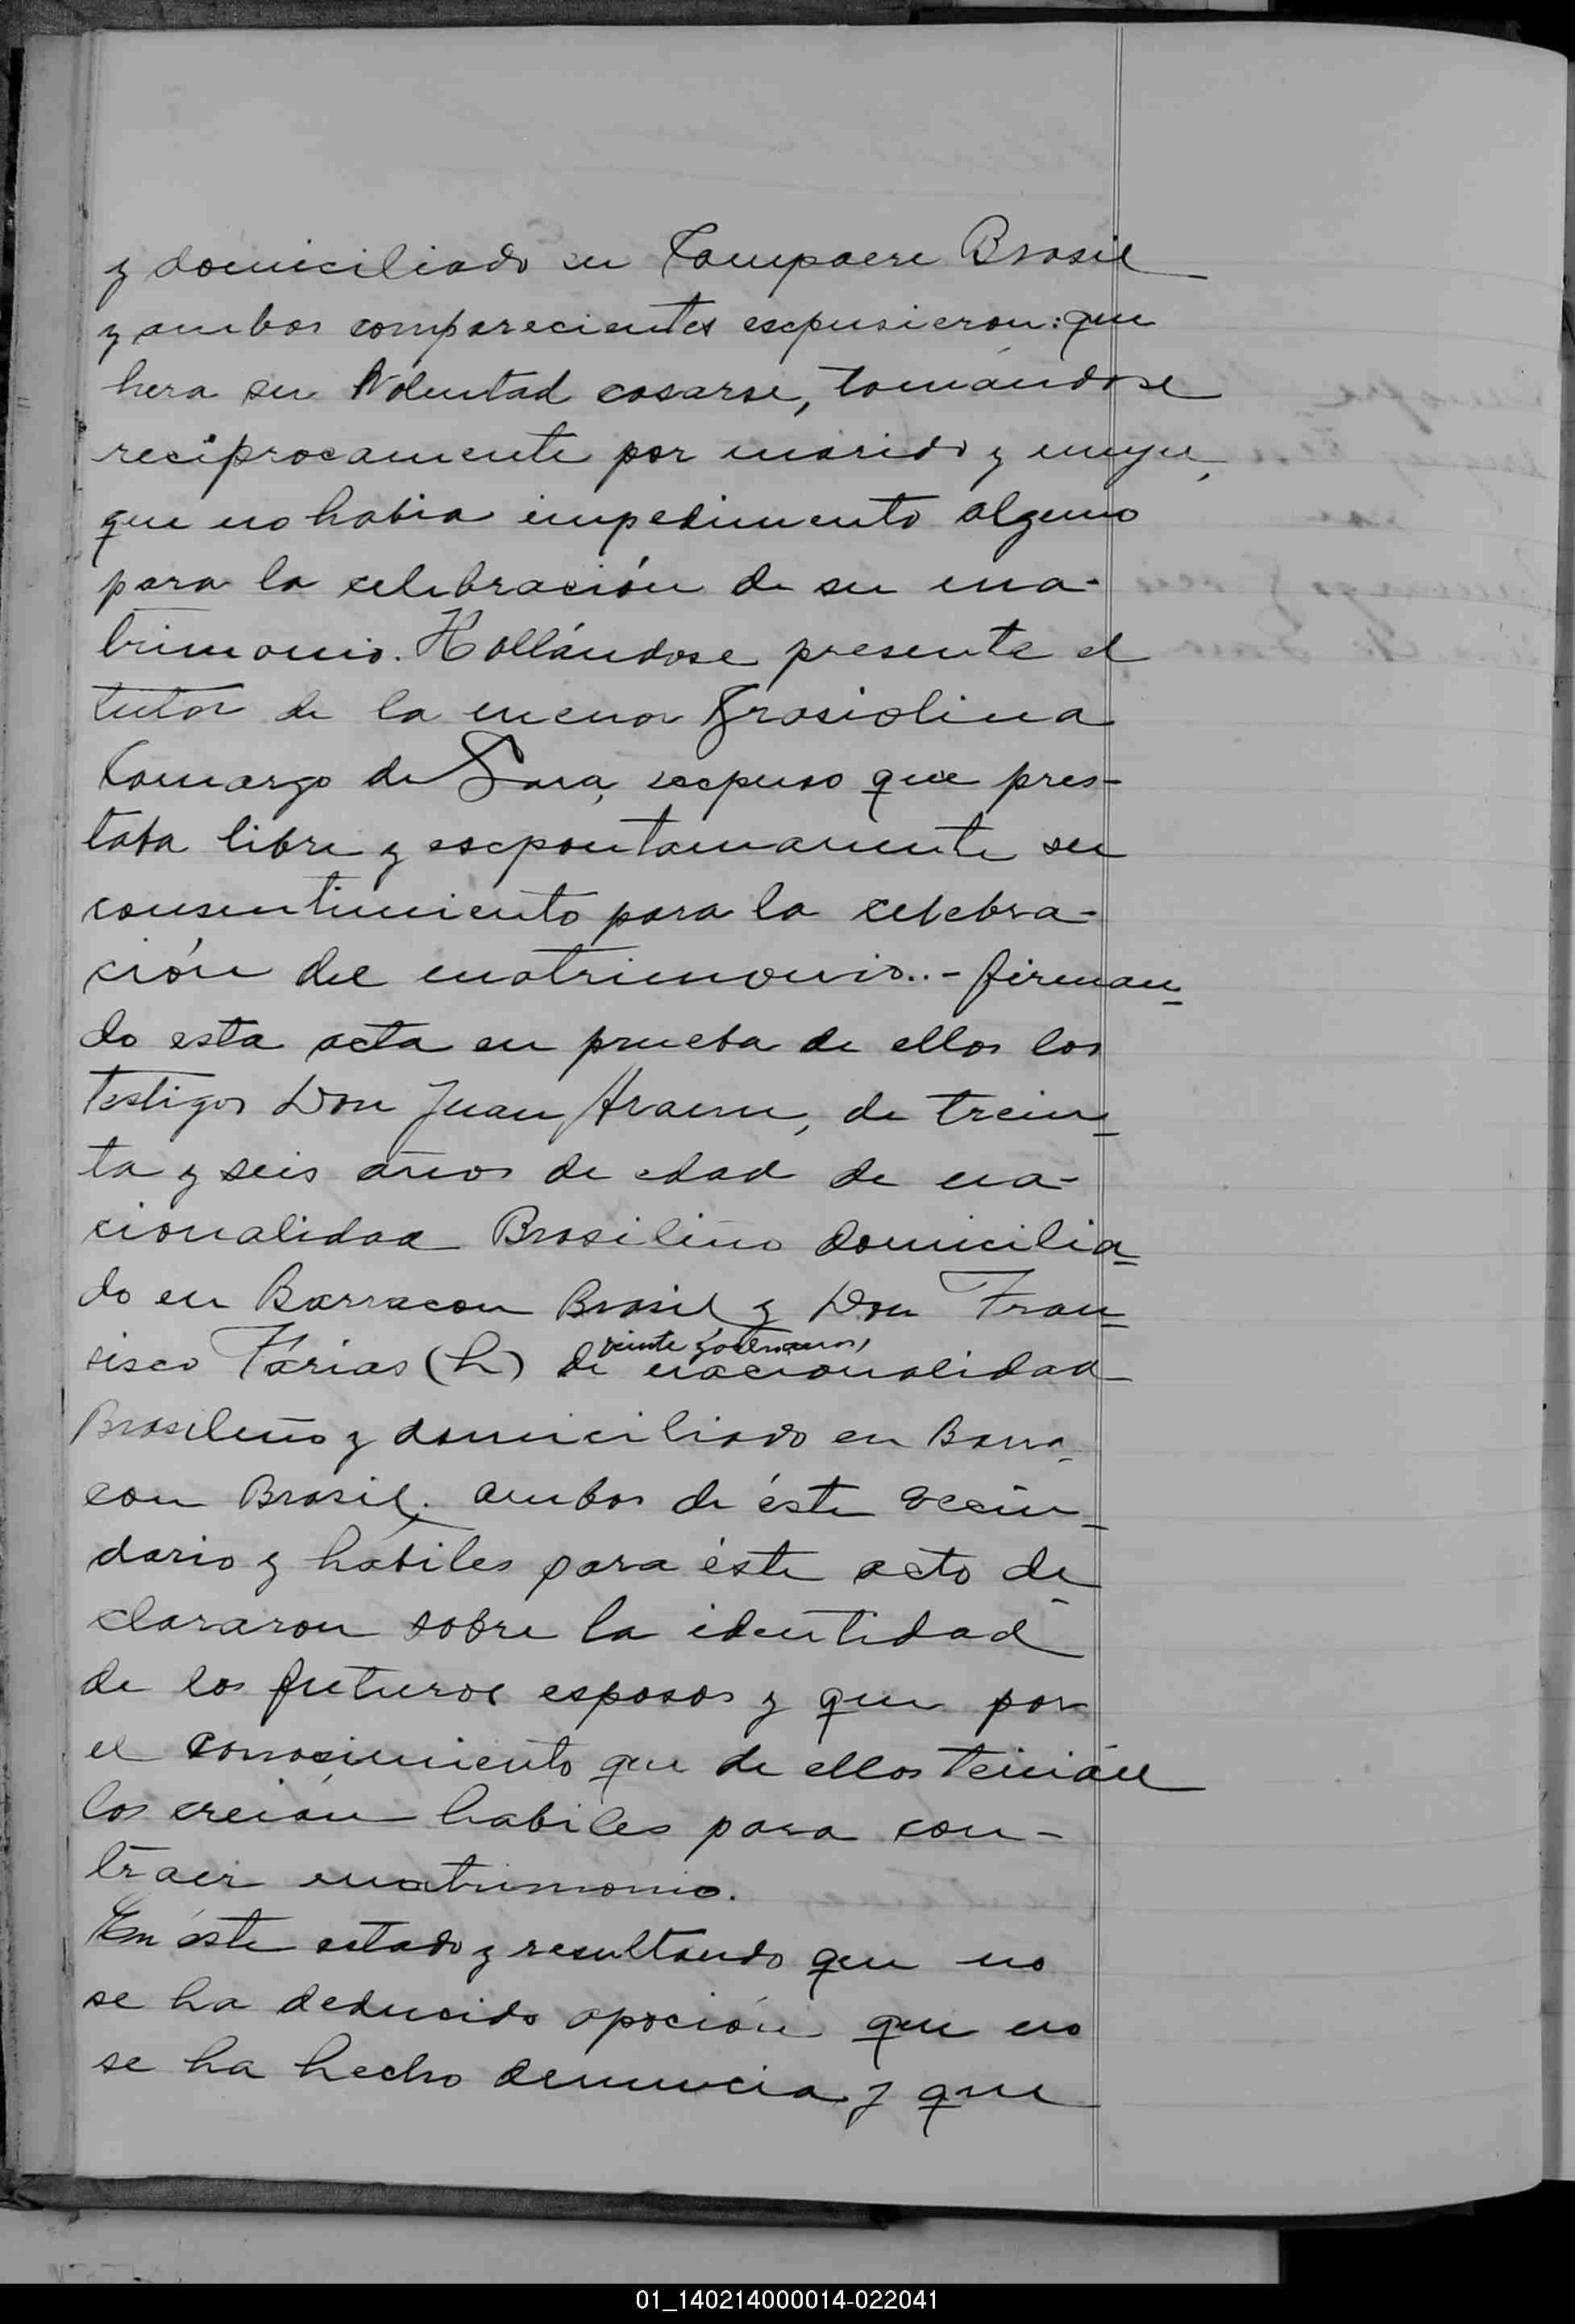 y domiciliado en Campaere Brasil
y ambos comparecientes escpusieron: que
hera su Voluntad casarse, tomándose
reciprocamente por marido y mujer,
que no habia impedimento alguno
para la celebración de su ma-
trimonio. Hallándose presente el
tutor de la menor Grasiolina
Camargo de Lara, escpuso que pres-
taba libre y escpontamamente su
consentimiento para la celebra-
ción del matrimonio..- firman-
do esta acta en prueba de ellos los
testigos Don Juan, de trein-
ta y seis años de edad de na-
cionalidad Brasiliño domicilia-
do en Barracon Brasil y Don Fran-
veinte y años,
sisco Farias (h) de nacionalidad
Brasileño y domiciliado en Barra-
con Brasil, ambos de éste Vecin-
dario y hábiles para éste acto de-
clararon sobre la identidad
de los futuros esposos y que por
el conosimiento que de ellos tenián
los creián habiles para con-
traer matrimonio.
En éste estado y resultando que no
se ha deducido oposión que no
se ha hecho denuncia y que
01_140214000014-022041